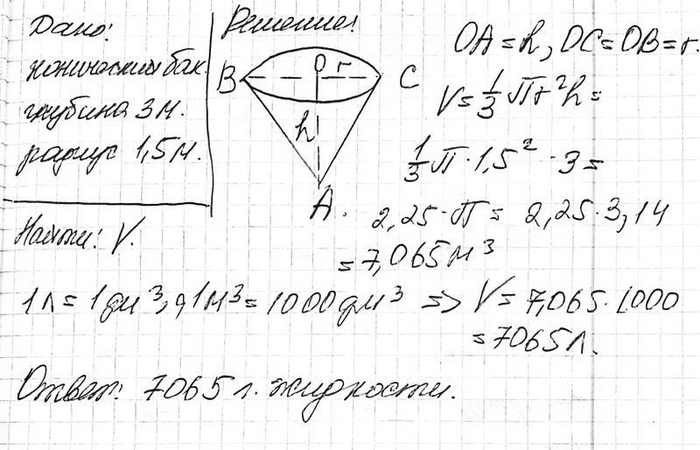 Дано:
конический бак.
глубина 3 м.
радиус 1,5 м.
Найти: V.
Решение:
B O r C
h
A.
OA = h, OC = OB = r.
V = 1/3 πr²h =
1/3 π · 1,5² · 3 =
2,25 · π = 2,25 · 3,14
= 7,065 м³
1 л = 1 дм³, а 1 м³ = 1000 дм³ => V = 7,065 · 1000
= 7065 л.
Ответ: 7065 л. жидкости.